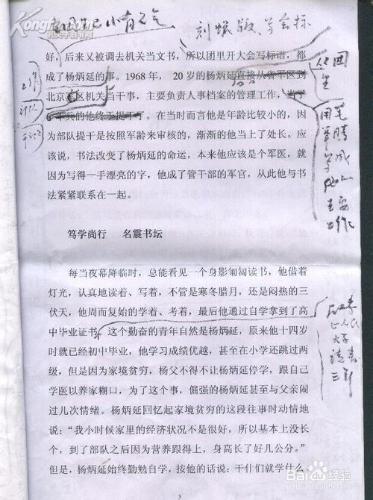 小有名气
刻蜡版、写会标
好，后来又被调去机关当文书，所以团里开大会写标语，都
成了杨炳延的事。1968年，20岁的杨炳延直接从省军区到
北京军区机关当干事，主要负责人事档案的管理工作，
在当时而言他是年龄比较小的，因
为部队提干是按照军龄来审核的，渐渐的他当上了处长。应
该说，书法改变了杨炳延的命运，本来他应该是个军医，就
因为写得一手漂亮的字，他成了管干部的军官，从此他与书
法紧紧联系在一起。
笃学尚行 名震书坛
每当夜幕降临时，总能看见一个身影匍匐读书，他借着
灯光，认真地读着、写着，不管是寒冬腊月，还是闷热的三
伏天，他周而复始的学着、考着，最后他通过自学拿到了高
中毕业证书。这个勤奋的青年自然是杨炳延，原来他十四岁
时就已经初中毕业，他学习成绩优越，甚至在小学还跳过两
级，但是因为家境贫穷，杨父不得不让杨炳延停学，跟自己
学医以养家糊口，为了这个事，倔强的杨炳延甚至与父亲闹
过几次情绪。杨炳延回忆起家境贫穷的这段往事时动情地
说：“我小时候家里的经济状况不是很好，所以基本上没长
个，到了部队之后因为营养跟得上，身高长了好几公分。”
但是，杨炳延始终勤勉自学，按他的话说：干什们就学什么